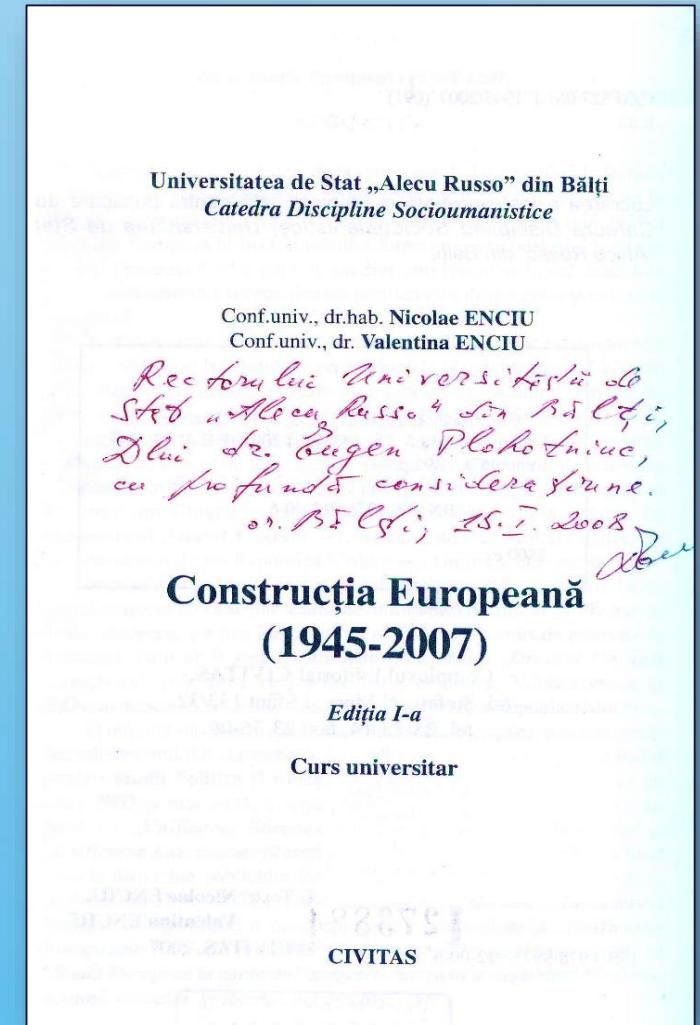 Universitatea de Stat „Alecu Russo” din Bălți
Catedra Discipline Socioumanistice
Conf.univ., dr.hab. Nicolae ENCIU
Conf.univ., dr. Valentina ENCIU
Rectorului Universității de
Stat „Alecu Russo" din Bălți,
Dlui dr. Eugen Plohotniuc,
cu profundă considerațiune.
or. Bălți, 15.I.2008
Construcția Europeană
(1945-2007)
Ediția I-a
Curs universitar
CIVITAS